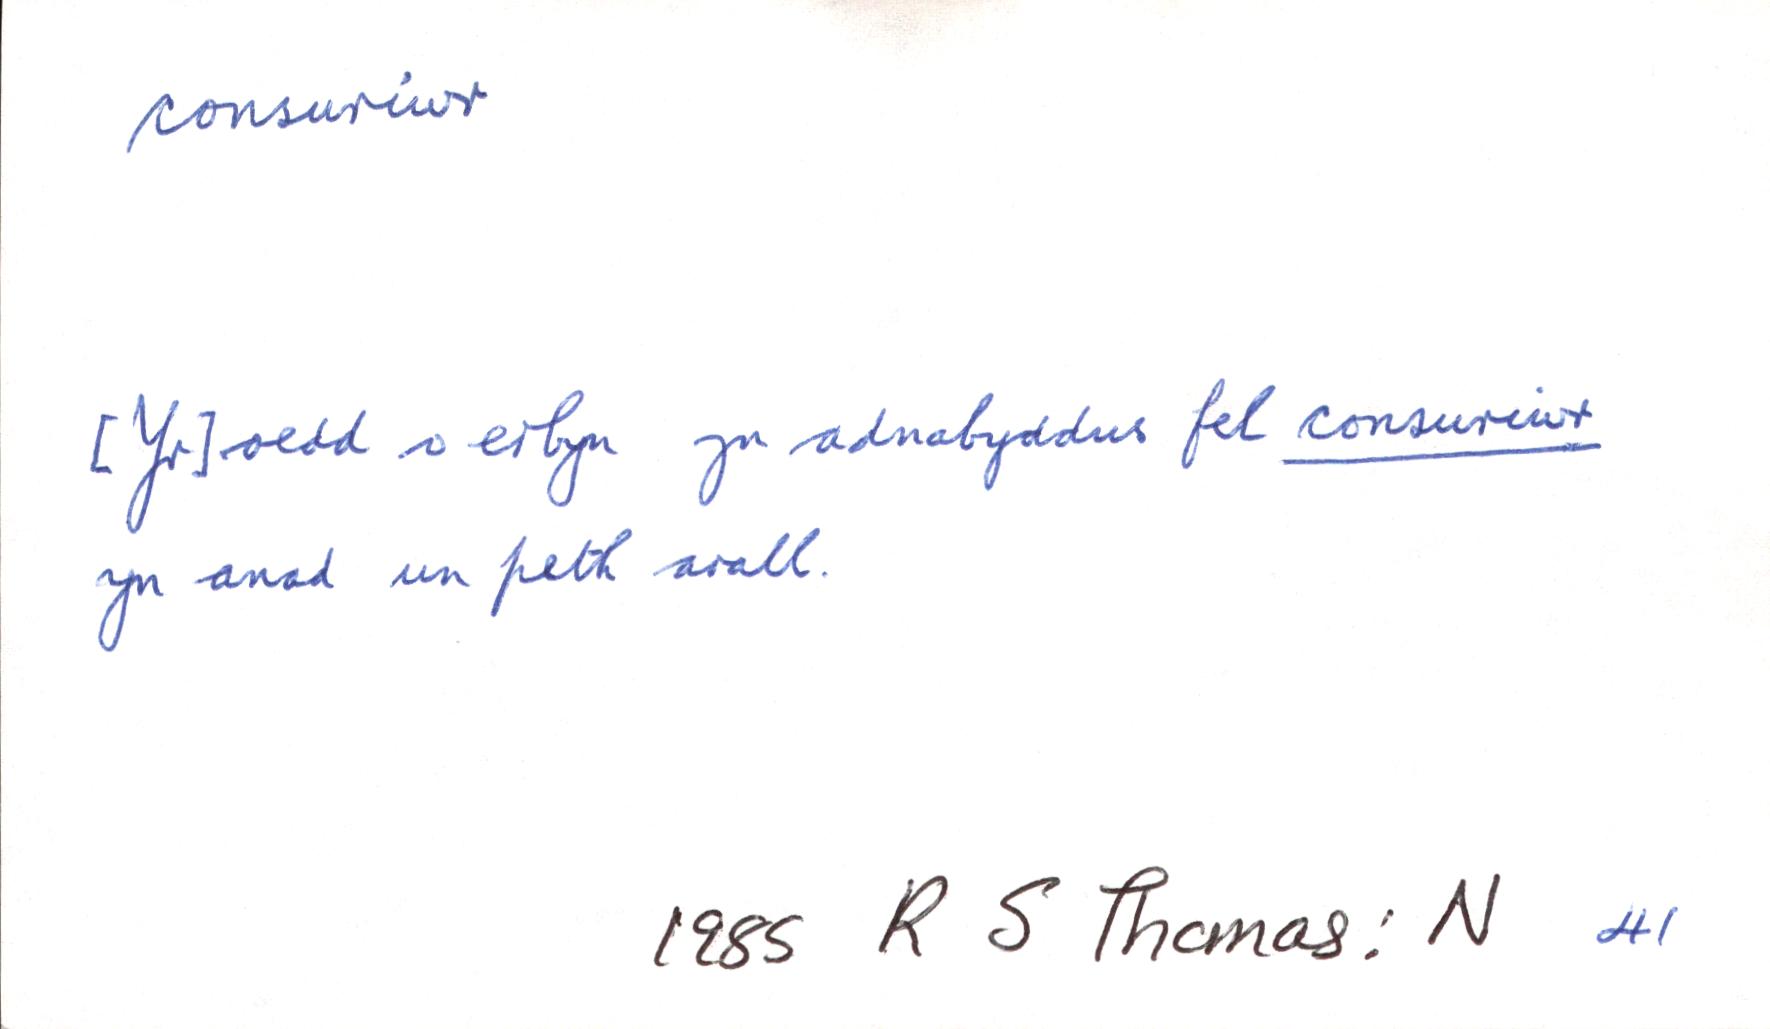 consuriwr
[Yr] oedd o erbyn yn adnabyddus fel consuriwr
yn anad un peth arall.
1985 R S Thomas: N 41